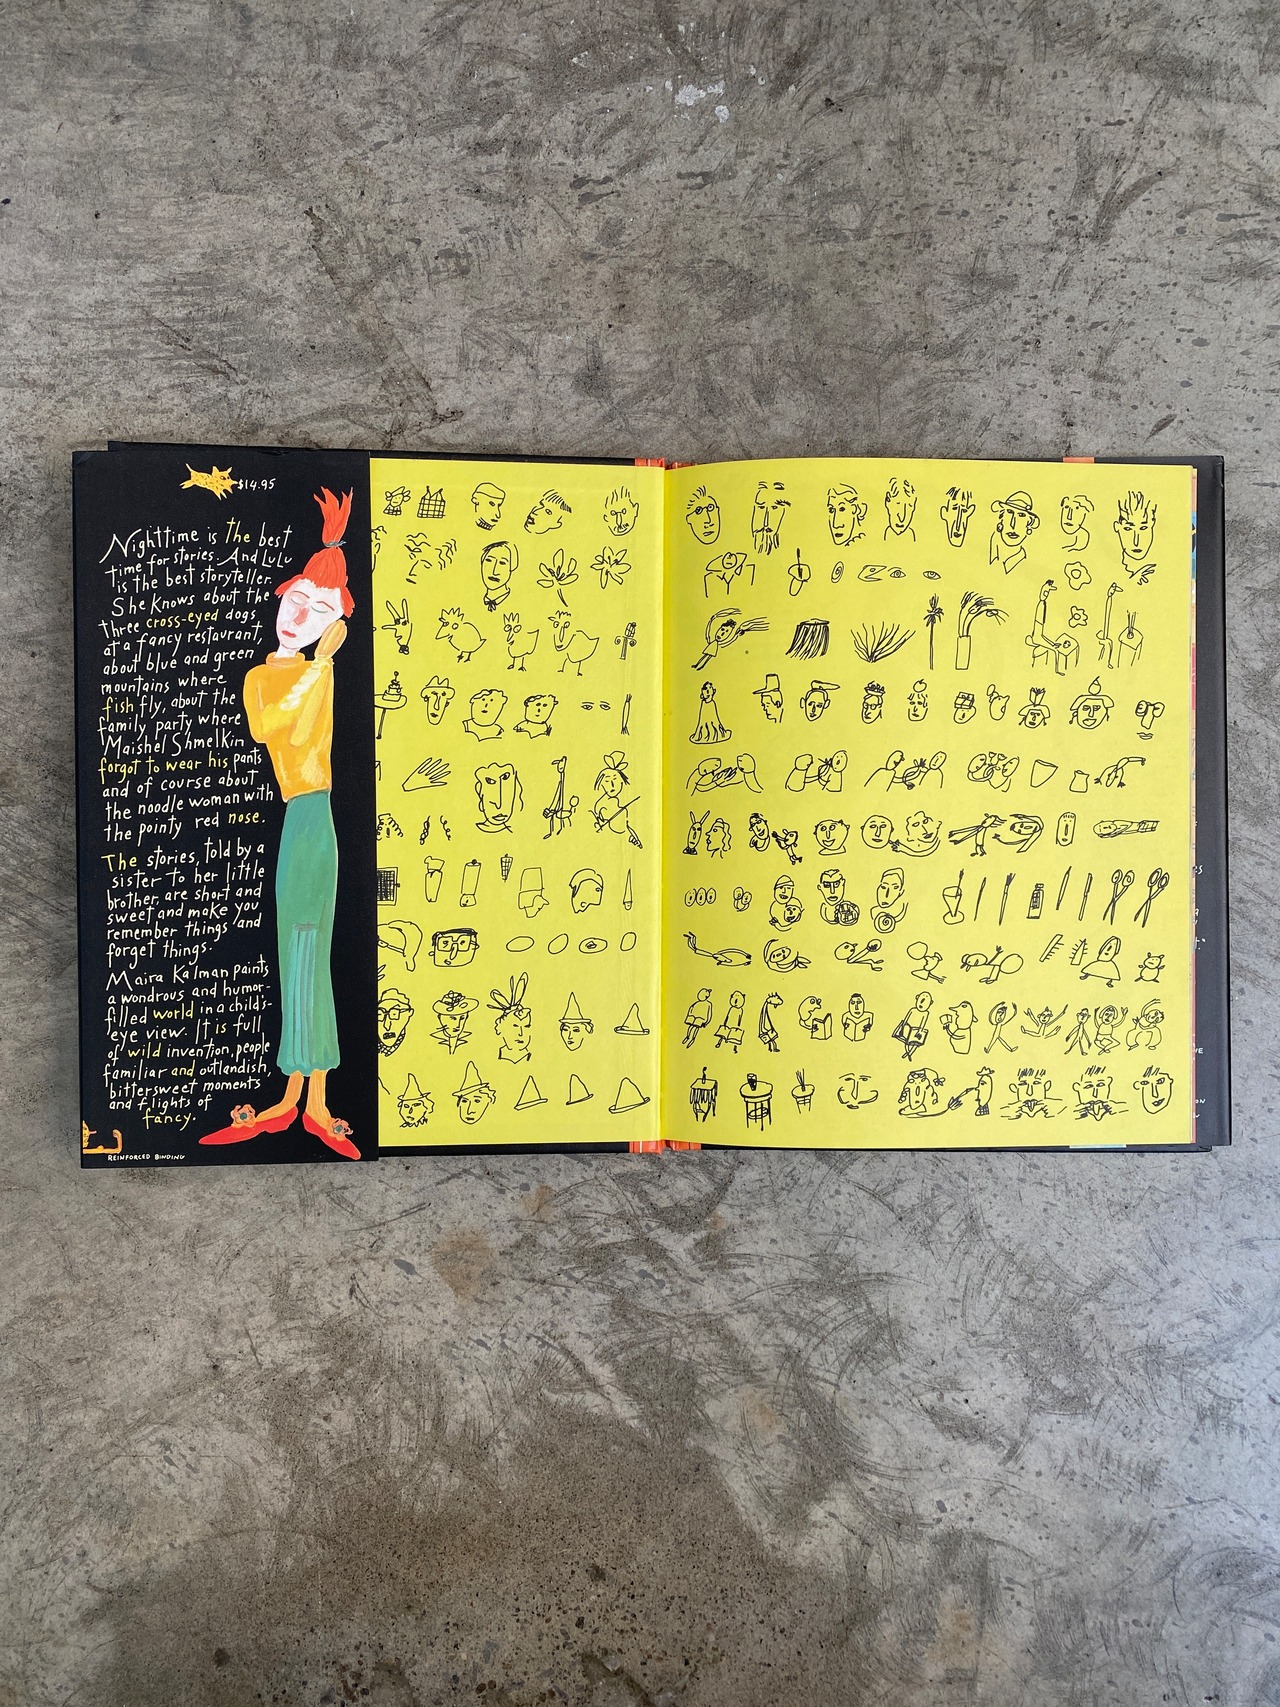 $14.95
Nighttime is the best
time for stories. And LuLu
is the best storyteller.
She knows about the
three cross-eyed dogs
at a fancy restaurant,
about blue and green
mountains where
fish fly, about the
family party where
Maishel Shmelkin
forgot to wear his pants
and of course about
the noodle woman with
the pointy red nose.
The stories, told by a
sister to her little
brother, are short and
sweet and make you
remember things and
forget things.
Maira Kalman paints
a wondrous and humor-
filled world in a child's-
eye view. It is full
of wild invention, people
familiar and outlandish,
bittersweet moments
and flights of
fancy.
REINFORCED BINDING